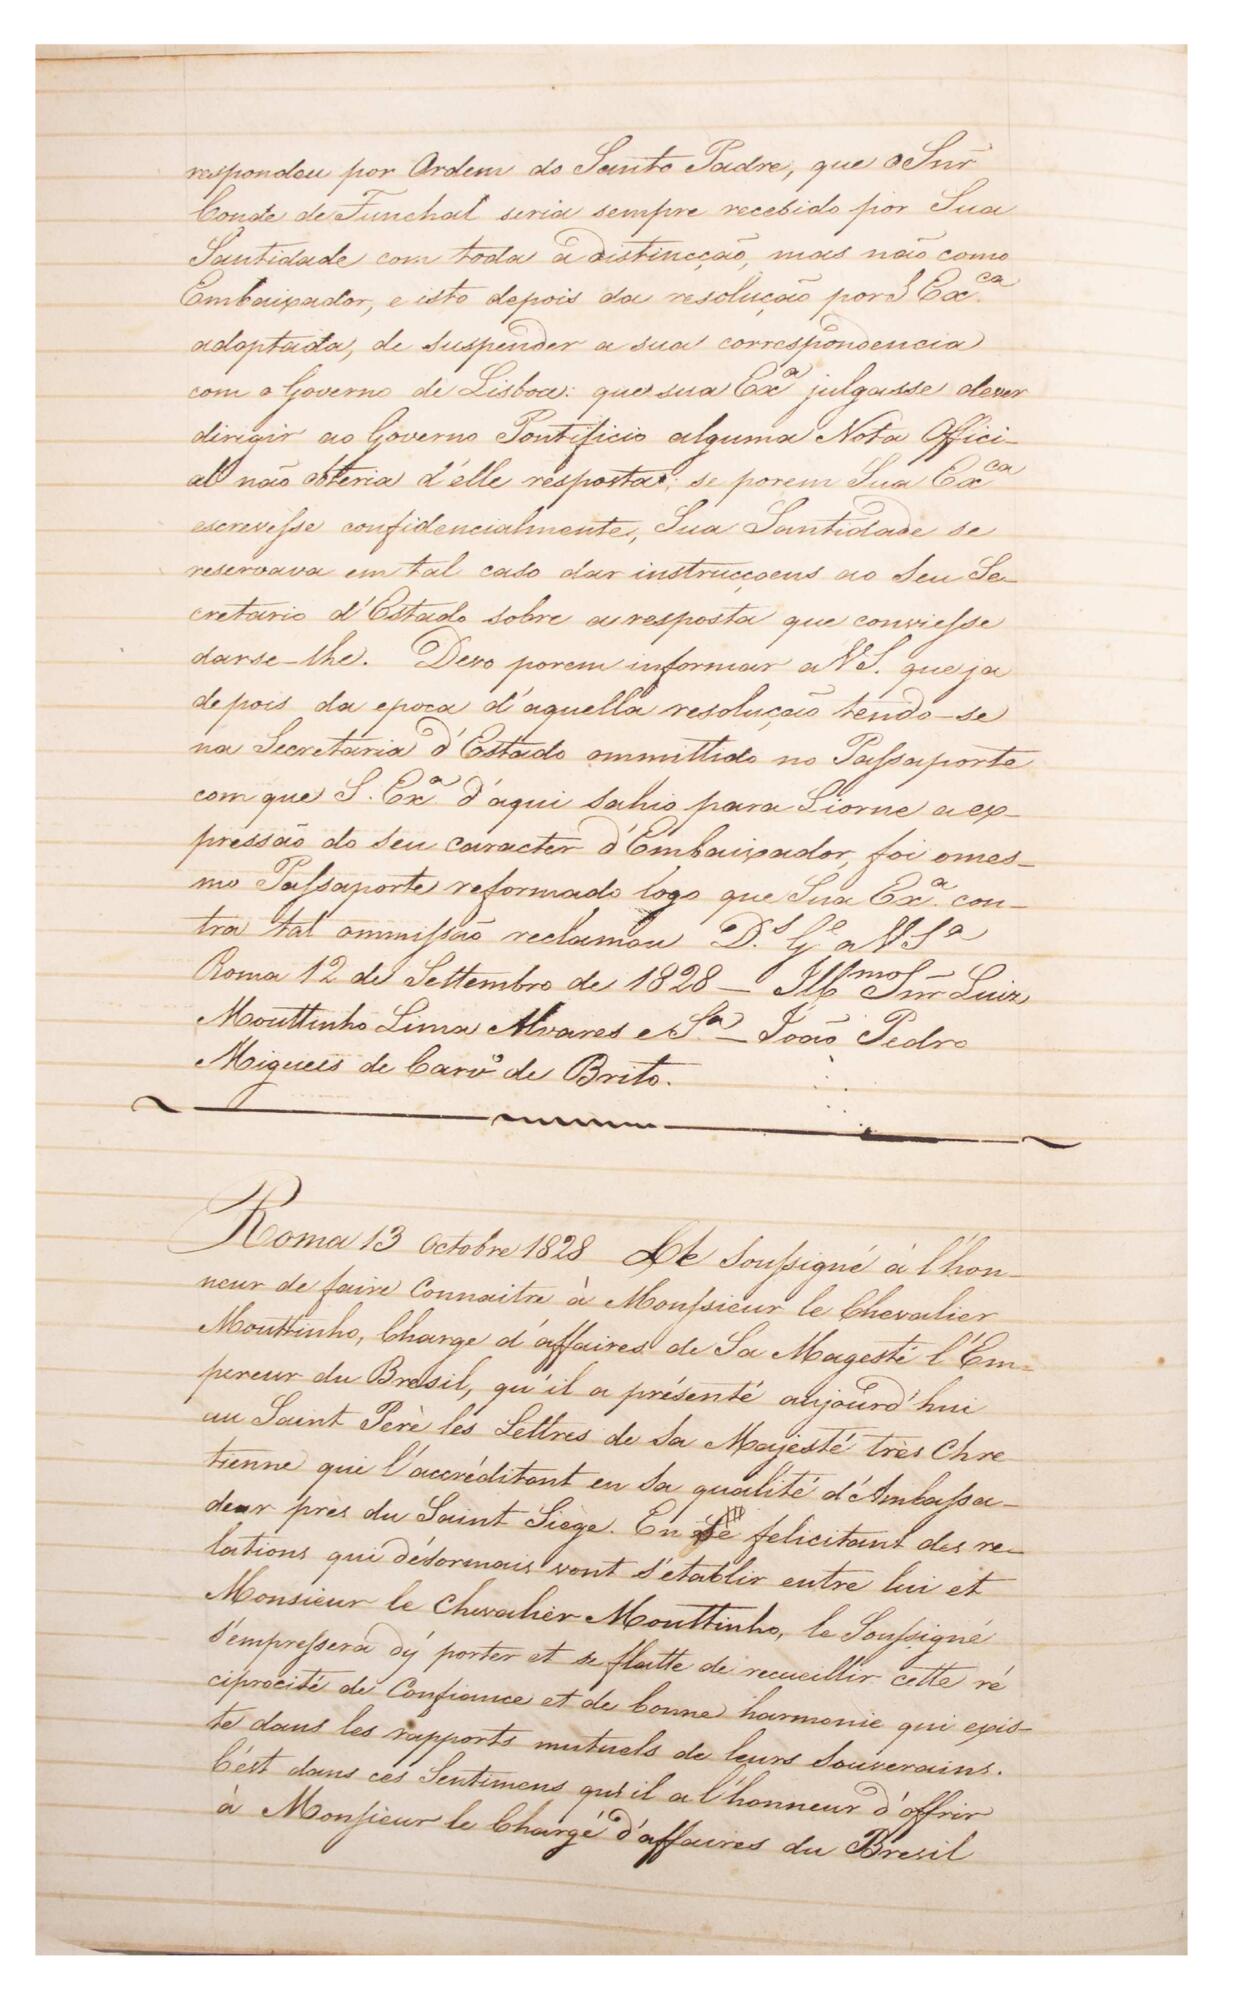 respondeu por Ordem do Santo Padre, que o Snr̃
Conde de Funchal seria sempre recebido por Sua
Santidade com toda a distincção, mas não como
Embaixador, e isto depois da resolução por S Exca
adoptada, de suspender a sua correspondencia
com o Governo de Lisboa: que sua Exa julgasse dever
dirigir ao Governo Pontificio alguma Nota Offici-
al não obteria d'élle resposta; se porem Sua Exca
escrevesse confidencialmente, Sua Santidade se
reservava em tal caso dar instrucçoens ao Seu Se-
cretario d'Estado sobre a resposta que conviesse
darse-lhe. Devo porem informar a VS. que ja
depois da epoca d'aquella resolução tendo-se
na Secretaria d'Estado ommittido no Passaporte
com que S. Exa d'aqui sahio para Liorne a ex-
pressão do seu caracter d'Embaixador, foi o mes-
mo Passaporte reformado logo que Sua Exa. con-
tra tal ommissão reclamou D.s Ge a VSa
Roma 12 de Settembro de 1828 — Illmo Snr̃ Luiz
Mouttinho Lima Alvares e Sa. — João Pedro
Migueis de Carvo de Brito.
Roma 13 Octobre 1828 Le Soussigné à l'hon-
neur de faire Connaitre à Monssieur le Chevalier
Mouttinho, Charge d'affaires de Sa Magesté l'Em-
pereur du Bresil, qu'il a présenté aujourd'hui
au Saint Perè les Lettres de Sa Majesté très Chre
tienne qui l'accréditant en Sa qualité d'Ambassa-
deur près du Saint Siège. En se felicitant des re-
lations qui désormais vont s'établir entre lui et
Monsieur le Chevalier Mouttinho, le Soussigné
s'empressera d'y porter et se flatte de recueillir cette ré
ciprocité de Confiance et de bonne harmonie qui exis-
te dans les rapports mutuels de leurs Souverains.
C'ést dans ces Sentimens qu'il a l'honneur d'offrir
à Monsieur le Chargé d'affaires du Bresil